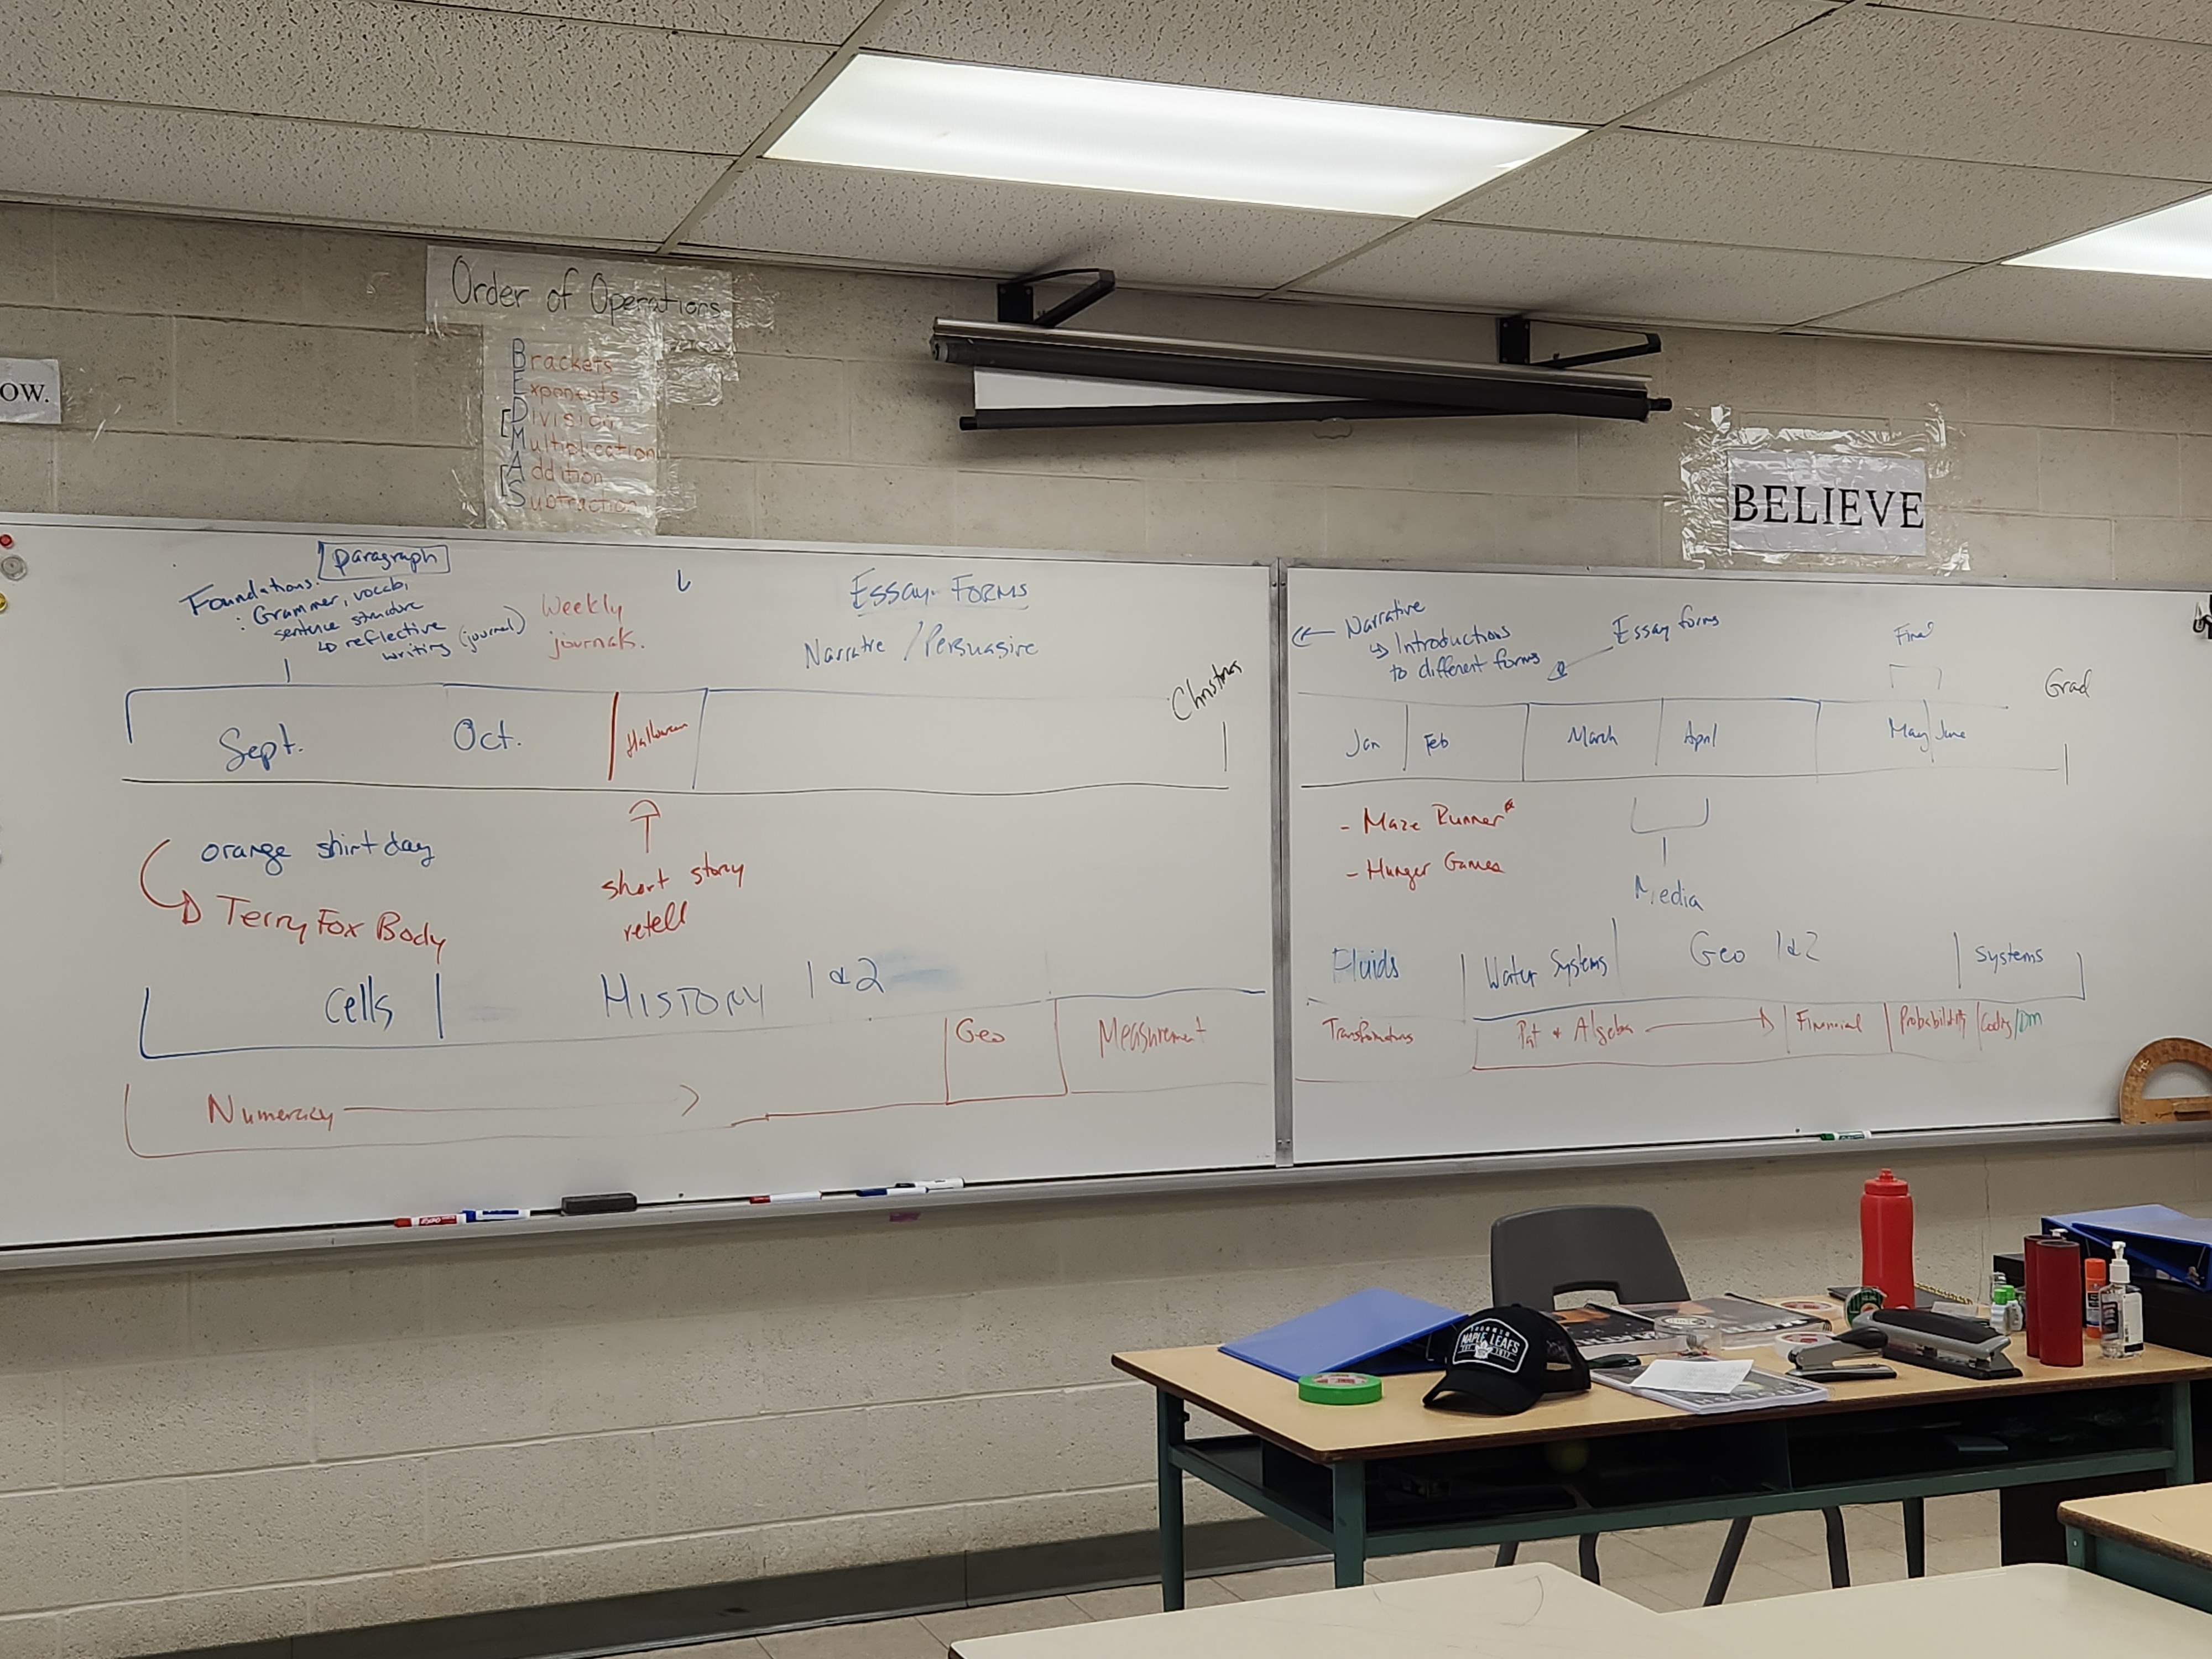 Order of Operations
Brackets
Exponents
Division
Multiplication
Addition
Subtraction
OW.
BELIEVE
paragraph
Foundations:
: Grammer, vocab,
sentence structure
reflective
writing (journal)
Weekly
journals.
ESSAY FORMS
Narrative / Persuasive
Christmas
Sept.
Oct.
Halloween
orange shirt day
Terry Fox Body
short story
retell
Cells
HISTORY 1 & 2
Geo
Measurement
Numeracy
Narrative
Introductions
to different forms
Essay forms
Final
Grad
Jan
Feb
March
April
May
June
- Maze Runner
- Hunger Games
Media
Fluids
Water Systems
Geo 1 & 2
Systems
Transformations
Pat + Algebra
Financial
Probability
Coding/DM
TORONTO
MAPLE LEAFS